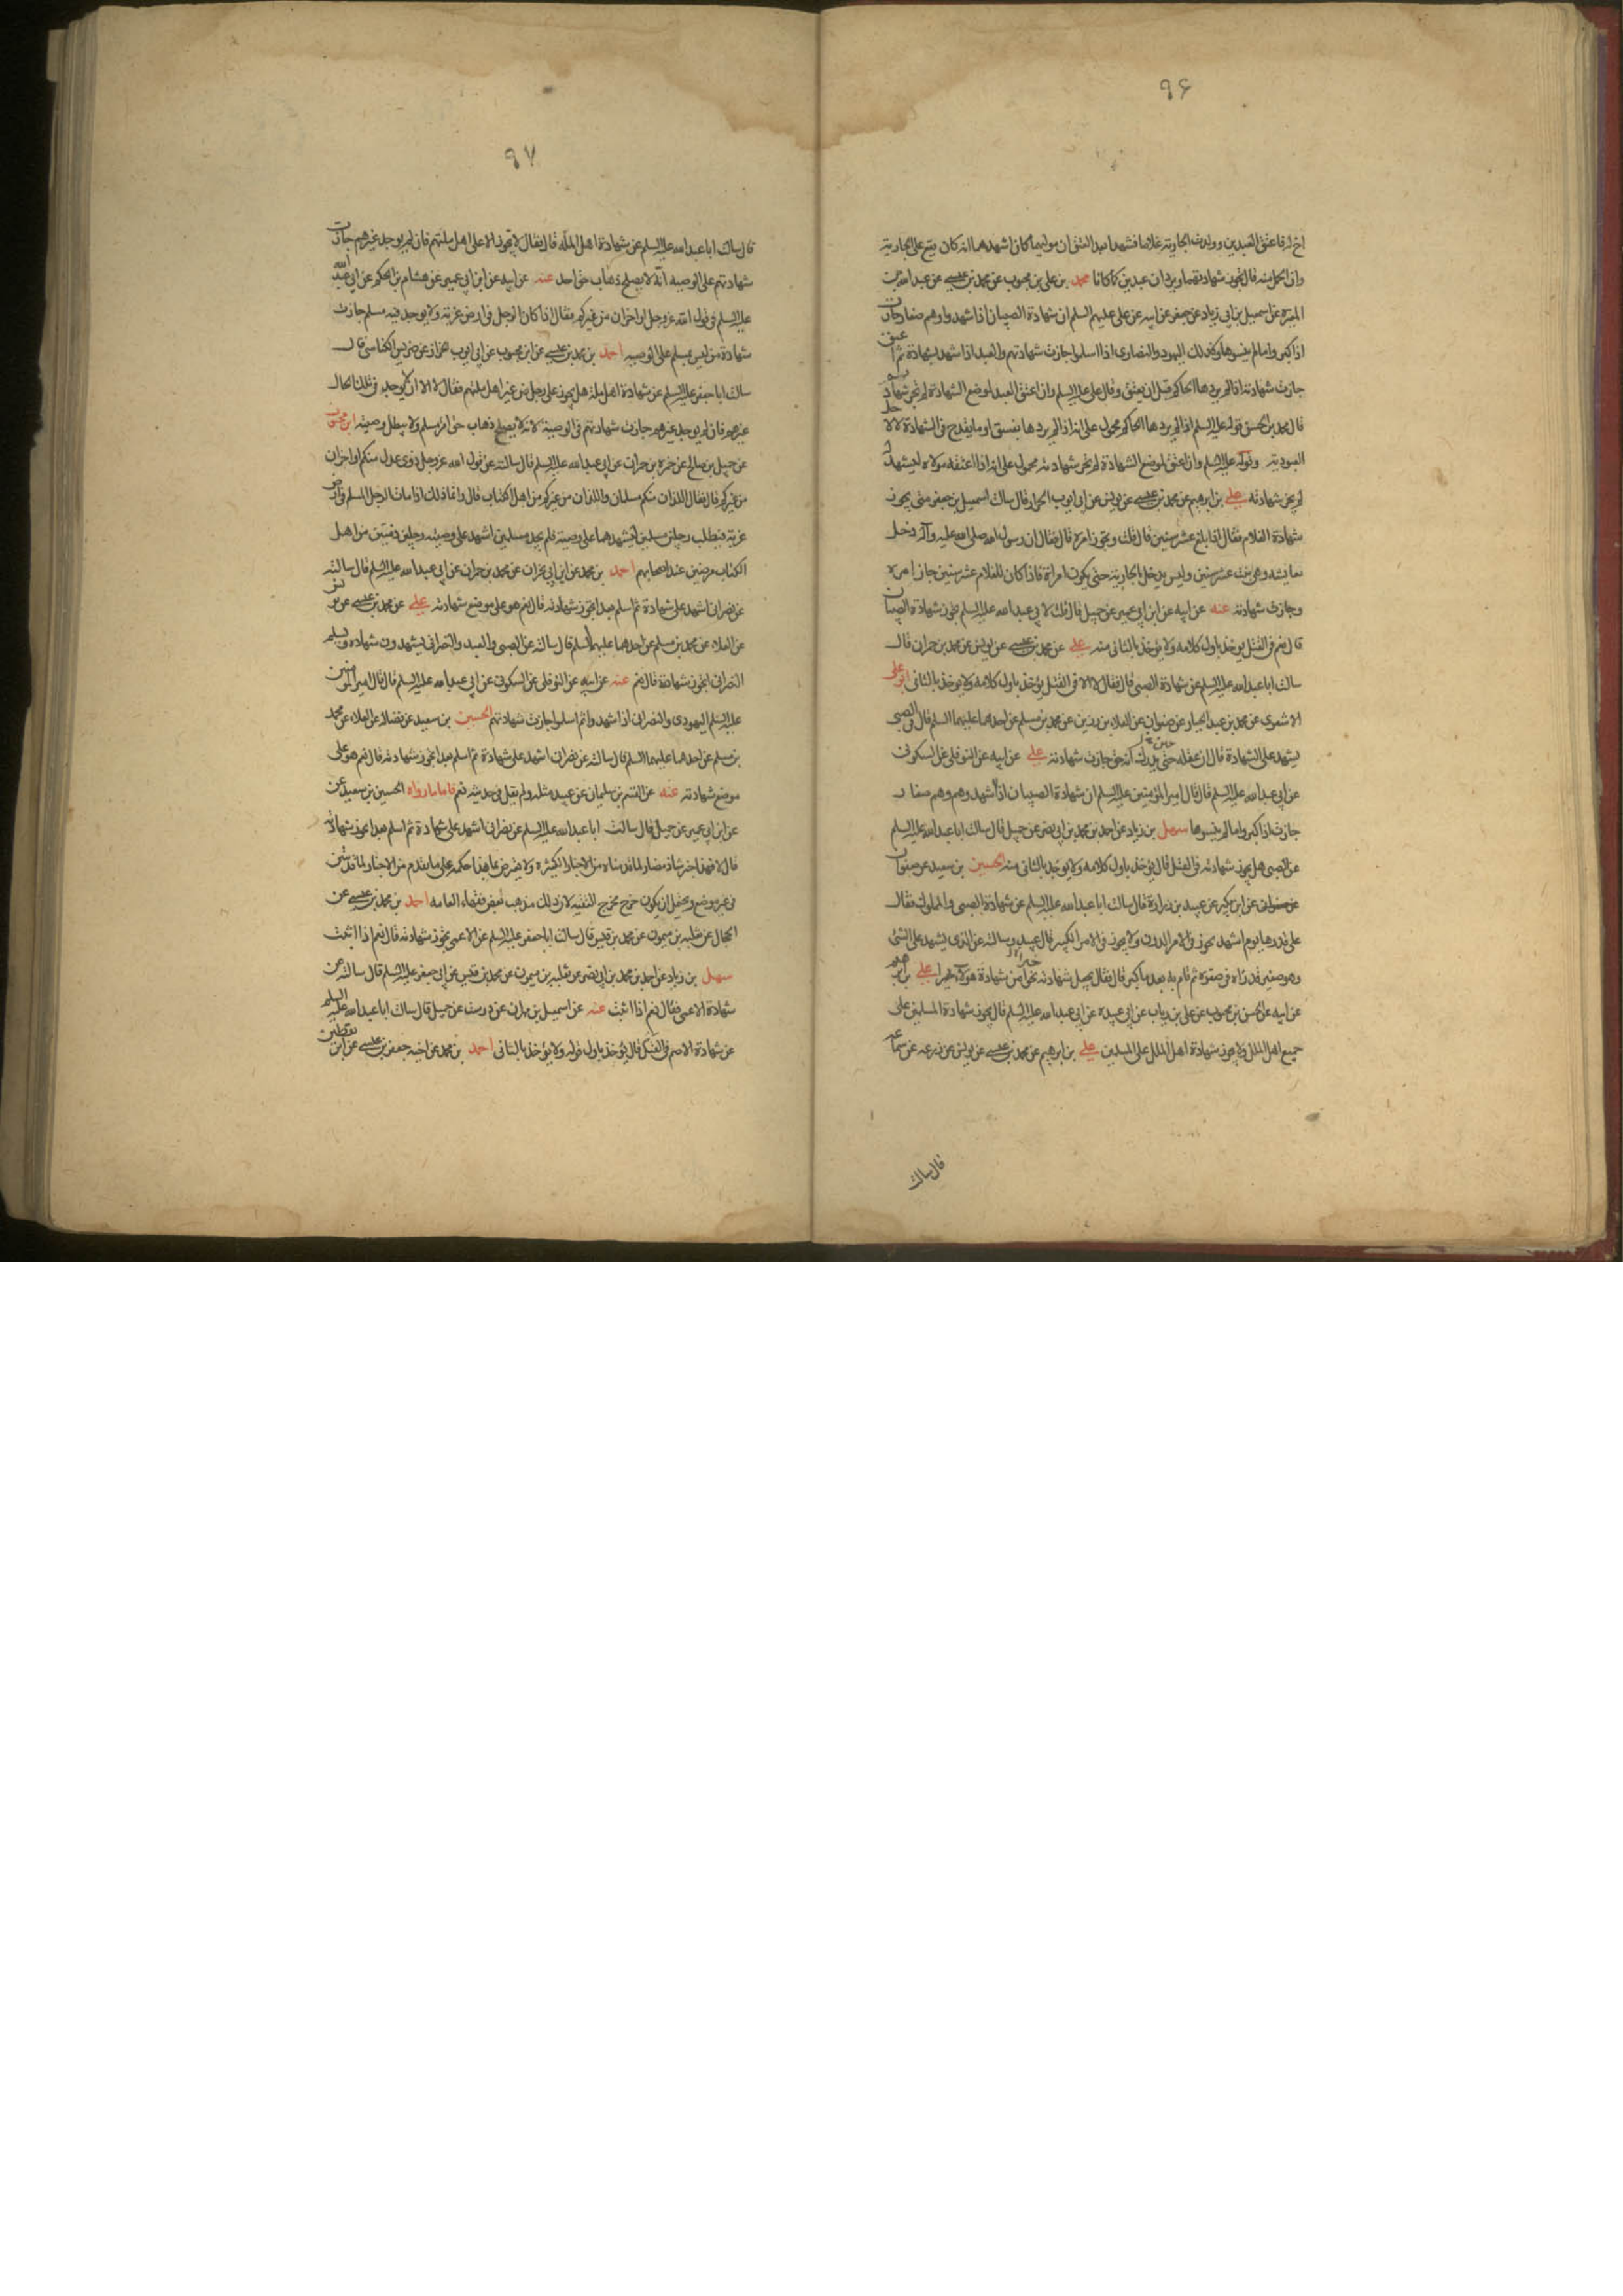 ٩۶
اخ له فاعتق العبدين وولدت الجارية غلاما فشهدا بعد العتق ان مولیهما كان اشهدهما انه كان يقع على الجارية
وان الحمل منه قال تجوز شهادتهما ويردان عبدين كما كانا محمد بن علي بن محبوب عن محمد بن عيسى عن عبد الله بن
المغيرة عن اسمعيل بن ابي زياد عن جعفر عن ابيه عن علي عليهم السلم ان شهادة الصبيان اذا شهدوا وهم صغار جازت
اذا كبروا ما لم ينسوها وكذلك اليهود والنصارى اذا اسلموا جازت شهادتهم والعبد اذا شهد بشهادة ثم اعتق
جازت شهادته اذا لم يردها الحاكم قبل ان يعتق وقال علي عليه السلم وان اعتق العبد لموضع الشهادة لم تجز شهادته
قال محمد بن الحسن قوله عليه السلم اذا لم يردها الحاكم محمول على انه اذا لم يردها بفسق او ما يقدح في الشهادة لا لاجل
العبودية وقوله عليه السلم وان اعتق لموضع الشهادة لم تجز شهادته محمول على انه اذا اعتقه مولاه ليشهد له
لم يجز شهادته علي بن ابرهيم عن محمد بن عيسى عن يونس عن ابي ايوب الخزاز قال سالت اسمعيل بن جعفر متى يجوز
شهادة الغلام فقال اذا بلغ عشر سنين قال قلت ويجوز امره قال فقال ان رسول الله صلى الله عليه وآله دخل
بعايشة وهي بنت عشر سنين وليس يدخل بالجارية حتى يكون امراة فاذا كان للغلام عشر سنين جاز امره
وجازت شهادته عنه عن ابيه عن ابن ابي عمير عن جميل قال قلت لابي عبد الله عليه السلم تجوز شهادة الصبيان
قال نعم في القتل يؤخذ باول كلامه ولا يؤخذ بالثاني منه علي عن محمد بن عيسى عن يونس عن محمد بن حمران قال
سالت ابا عبد الله عليه السلم عن شهادة الصبي قال فقال لا الا في القتل يؤخذ باول كلامه ولا يؤخذ بالثاني ابو علي
الاشعري عن محمد بن عبد الجبار عن صفوان عن العلاء بن رزين عن محمد بن مسلم عن احدهما عليهما السلم قال في الصبي
يشهد على الشهادة قال ان عقله حتى يدرك انه حق جازت شهادته علي عن ابيه عن النوفلي عن السكوني
عن ابي عبد الله عليه السلم قال قال امير المؤمنين عليه السلم ان شهادة الصبيان اذا اشهدوهم وهم صغار
جازت اذا كبروا ما لم ينسوها سهل بن زياد عن احمد بن محمد بن ابي نصر عن جميل قال سالت ابا عبد الله عليه السلم
عن الصبي هل يجوز شهادته في القتل قال يؤخذ باول كلامه ولا يؤخذ بالثاني منه الحسين بن سعيد عن صفوان
عن صفوان عن ابن بكير عن عبيد بن زرارة قال سالت ابا عبد الله عليه السلم عن شهادة الصبي والمملوك فقال
على قدرها يوم اشهد تجوز في الامر الدون ولا يجوز في الامر الكبير قال عبيد وسالته عن الذي يشهد على الشئ
وهو صغير قد راه في صغره ثم قام به بعد ما كبر قال فقال يجعل شهادته نحوا من شهادة هؤلاء خيرا علي بن ابرهيم
عن ابيه عن الحسن بن محبوب عن علي بن رياب عن ابي عبيده عن ابي عبد الله عليه السلم قال يجوز شهادة المسلمين على
جميع اهل الملل ولا يجوز شهادة اهل الملل على المسلمين علي بن ابرهيم عن محمد بن عيسى عن يونس عن زرعه عن سماعه
قال سالت
٩٧
قال سالت ابا عبد الله عليه السلم عن شهادة اهل الملة قال فقال لا تجوز الا على اهل ملتهم فان لم يوجد غيرهم جازت
شهادتهم على الوصية انه لا يصلح ذهاب حق احد عنه عن ابيه عن ابن ابي عمير عن هشام بن الحكم عن ابي عبد الله
عليه السلم في قول الله عز وجل او اخران من غيركم فقال اذا كان الرجل في ارض غربة ولا يوجد فيه مسلم جازت
شهادة من ليس بمسلم على الوصية احمد بن محمد بن عيسى عن ابن محبوب عن ابي ايوب خزاز عن ضريس الكناسي قال
سالت ابا جعفر عليه السلم عن شهادة اهل ملة هل يجوز على رجل من غير اهل ملتهم فقال لا الا ان لا يوجد في تلك الحال
غيرهم فان لم يوجد غيرهم جازت شهادتهم في الوصية لانه لا يصلح ذهاب حق امرء مسلم ولا يبطل وصيته ابن محبوب
عن جميل بن صالح عن حمزه بن حمران عن ابي عبد الله عليه السلم قال سالته عن قول الله عز وجل ذوى عدل منكم او اخران
من غيركم قال فقال اللذان منكم مسلمان واللذان من غيركم من اهل الكتاب قال وانما ذلك اذا مات الرجل المسلم في ارض
غربة فيطلب رجلين مسلمين ليشهدهما على وصيته فلم يجد مسلمين اشهد على وصيته رجلين ذميين من اهل
الكتاب مرضيين عند اصحابهم احمد بن محمد عن ابن ابي نجران عن محمد بن حمران عن ابي عبد الله عليه السلم قال سالته
عن نصراني اشهد على شهادة ثم اسلم بعد اتجوز شهادته قال نعم هو على موضع شهادته علي عن محمد بن عيسى عن يونس
عن العلاء عن محمد بن مسلم عن احدهما عليهما السلم قال سالته عن الصبي والعبد والنصراني يشهدون شهاده فيسلم
النصراني اتجوز شهادته قال نعم عنه عن ابيه عن النوفلي عن السكوني عن ابي عبد الله عليه السلم قال قال امير المؤمنين
عليه السلم اليهودي والنصراني اذا اشهدوا ثم اسلموا جازت شهادتهم الحسين بن سعيد عن فضالة عن العلاء عن محمد
بن مسلم عن احدهما عليهما السلم قال سالته عن نصراني اشهد على شهادة ثم اسلم بعد اتجوز شهادته قال نعم هو على
موضع شهادته عنه عن القسم بن سليمان عن عبيد مثله ولم يقل في حديثه نعم فاما ما رواه الحسين بن سعيد عن
عن ابن ابي عمير عن جميل قال سالت ابا عبد الله عليه السلم عن نصراني اشهد على شهادة ثم اسلم بعد اتجوز شهادته
قال لا فهذا خبر شاذ مضاد لما قدمناه من الاخبار الكثيرة ولا يعترض بما هذا حكمه على ما يقدم من الاخبار لما قد بين
في غير موضع ويحتمل ان يكون خرج مخرج التقيه لان ذلك مذهب بعض فقهاء العامه احمد بن محمد بن عيسى عن
الحجال عن ثعلبه بن ميمون عن محمد بن قيس قال سالت ابا جعفر عليه السلم عن الاعمى تجوز شهادته قال نعم اذا اثبت
سهل بن زياد عن احمد بن محمد بن ابي نصر عن ثعلبه بن ميمون عن محمد بن قيس عن ابي جعفر عليه السلم قال سالته عن
شهادة الاعمى فقال نعم اذا اثبت عنه عن اسمعيل بن مهران عن درست عن جميل قال سالت ابا عبد الله عليه السلم
عن شهادة الاصم في القتل قال يؤخذ باول قوله ولا يؤخذ بالثاني احمد بن محمد عن اخيه جعفر بن عيسى عن ابن يقطين